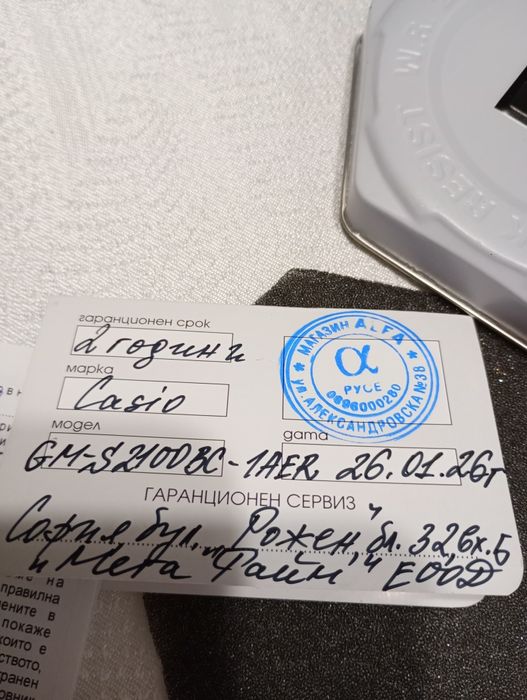 W.R
RESIST
гаранционен срок
2 години
марка
Casio
модел
GM-S2100BC-1AER
дата
26.01.26г
МАГАЗИН ALFA
α
РУСЕ
0896000260
УЛ. АЛЕКСАНДРОВСКА №38
ГАРАНЦИОНЕН СЕРВИЗ
София бул. "Рожен" бл. 32 вх. Б
"Мега Тайм" ЕООД
на
правилна
покаже
които е